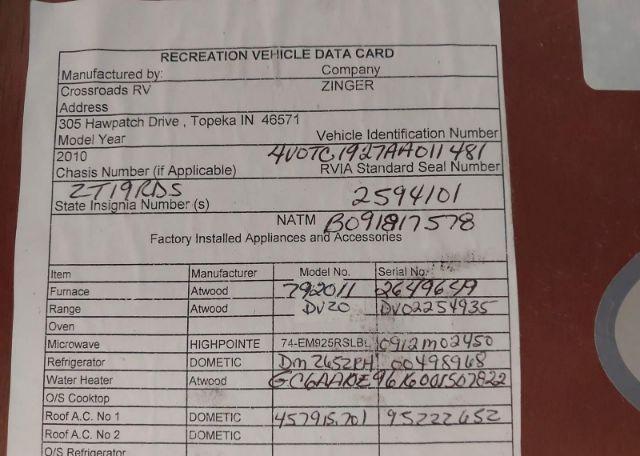 RECREATION VEHICLE DATA CARD
Manufactured by: Company
Crossroads RV ZINGER
Address
305 Hawpatch Drive , Topeka IN 46571
Model Year Vehicle Identification Number
2010 4V0TC1927AA011481
Chasis Number (if Applicable) RVIA Standard Seal Number
ZT19RDS 2594101
State Insignia Number (s)
NATM B091817578
Factory Installed Appliances and Accessories
Item Manufacturer Model No. Serial No.
Furnace Atwood 792011 2649649
Range Atwood DV20 DV02254935
Oven
Microwave HIGHPOINTE 74-EM925RSLBL 0912M02450
Refrigerator DOMETIC DM2652RH 00498968
Water Heater Atwood GC6AA10E 9616001507822
O/S Cooktop
Roof A.C. No 1 DOMETIC 457915.701 95222652
Roof A.C. No 2 DOMETIC
O/S Refrigerator